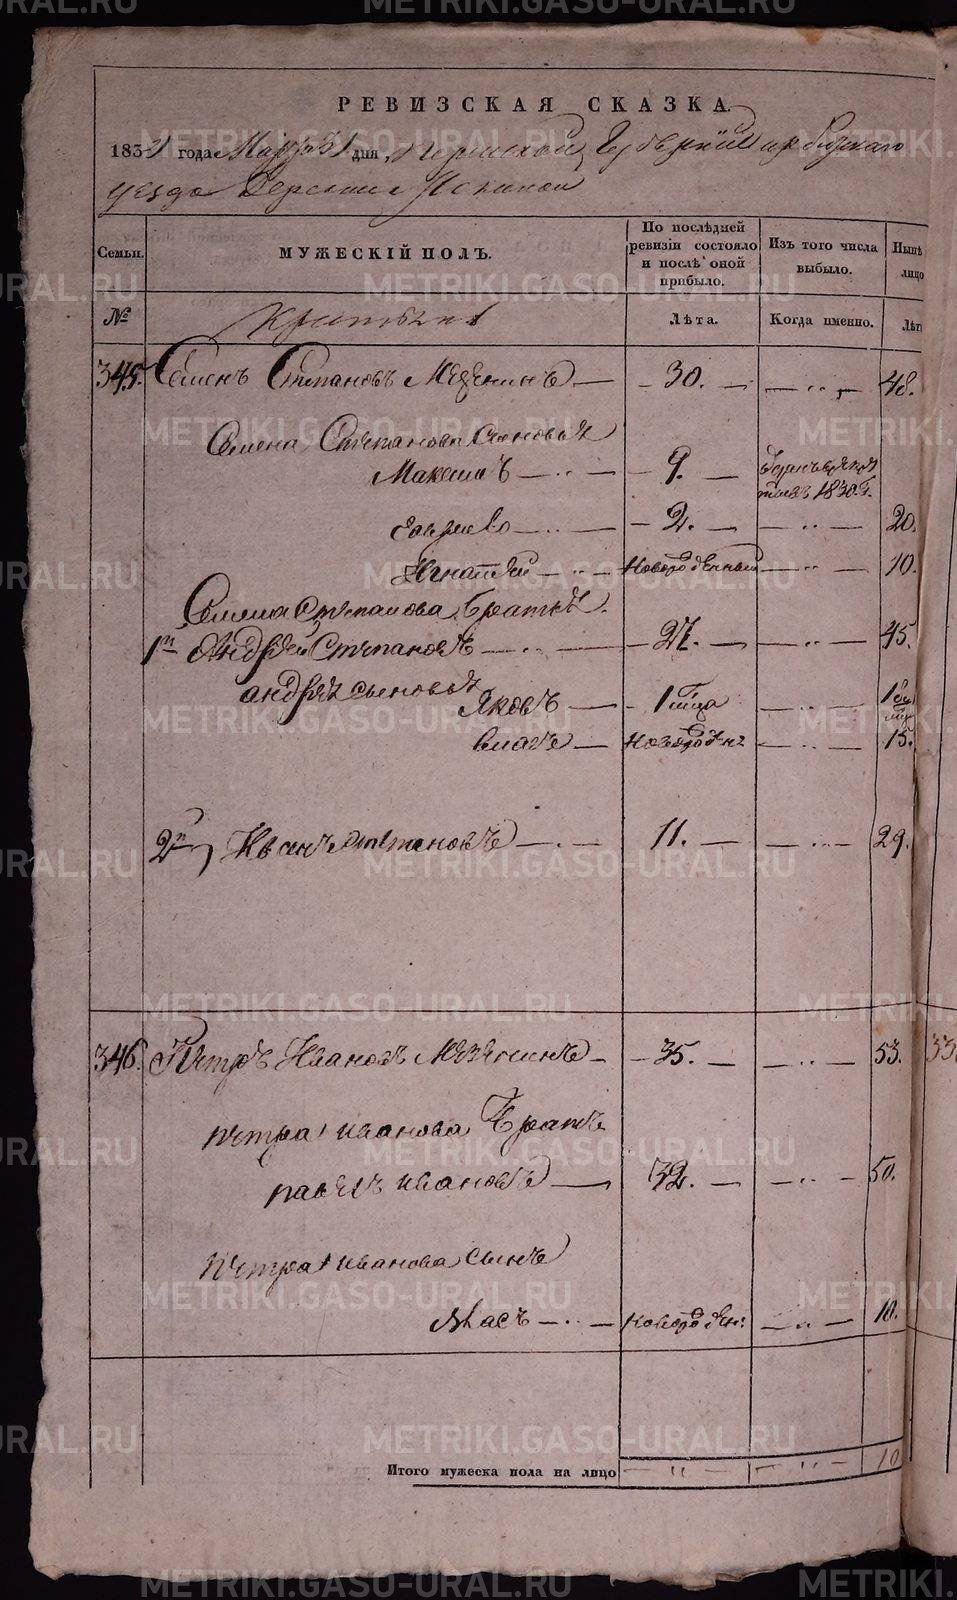 РЕВИЗСКАЯ СКАЗКА.
1834 года Марта дня Пермской Губернии Ирбитскаго
уезда Деревни
Семьи.
МУЖЕСКІЙ ПОЛЪ.
По послѣдней ревизіи состояло и послѣ оной прибыло.
Изъ того числа выбыло.
Нынѣ лицо
№
Лѣта.
Когда именно.
Лѣт
345. Семенъ Степановъ — 30. — 48.
Семена Степанова Сыновья
Максимъ — 9. — 1830. Г.
— 2. — 20.
Игнатей — Новорожденный — 10.
Семена Степанова Братья.
1й Андрей Степановъ — 27. — 45.
андрея сыновья
Яковъ — 1 —
власъ — Новорожден — 15.
2й Иванъ Степановъ — 11. — 29.
346. Петръ Ивановъ — 35. — 53.
петра иванова Братъ
павелъ ивановъ — 32. — 50.
петра иванова сынъ
— новорожден: — 10.
Итого мужеска пола на лицо — 10
METRIKI.GASO-URAL.RU